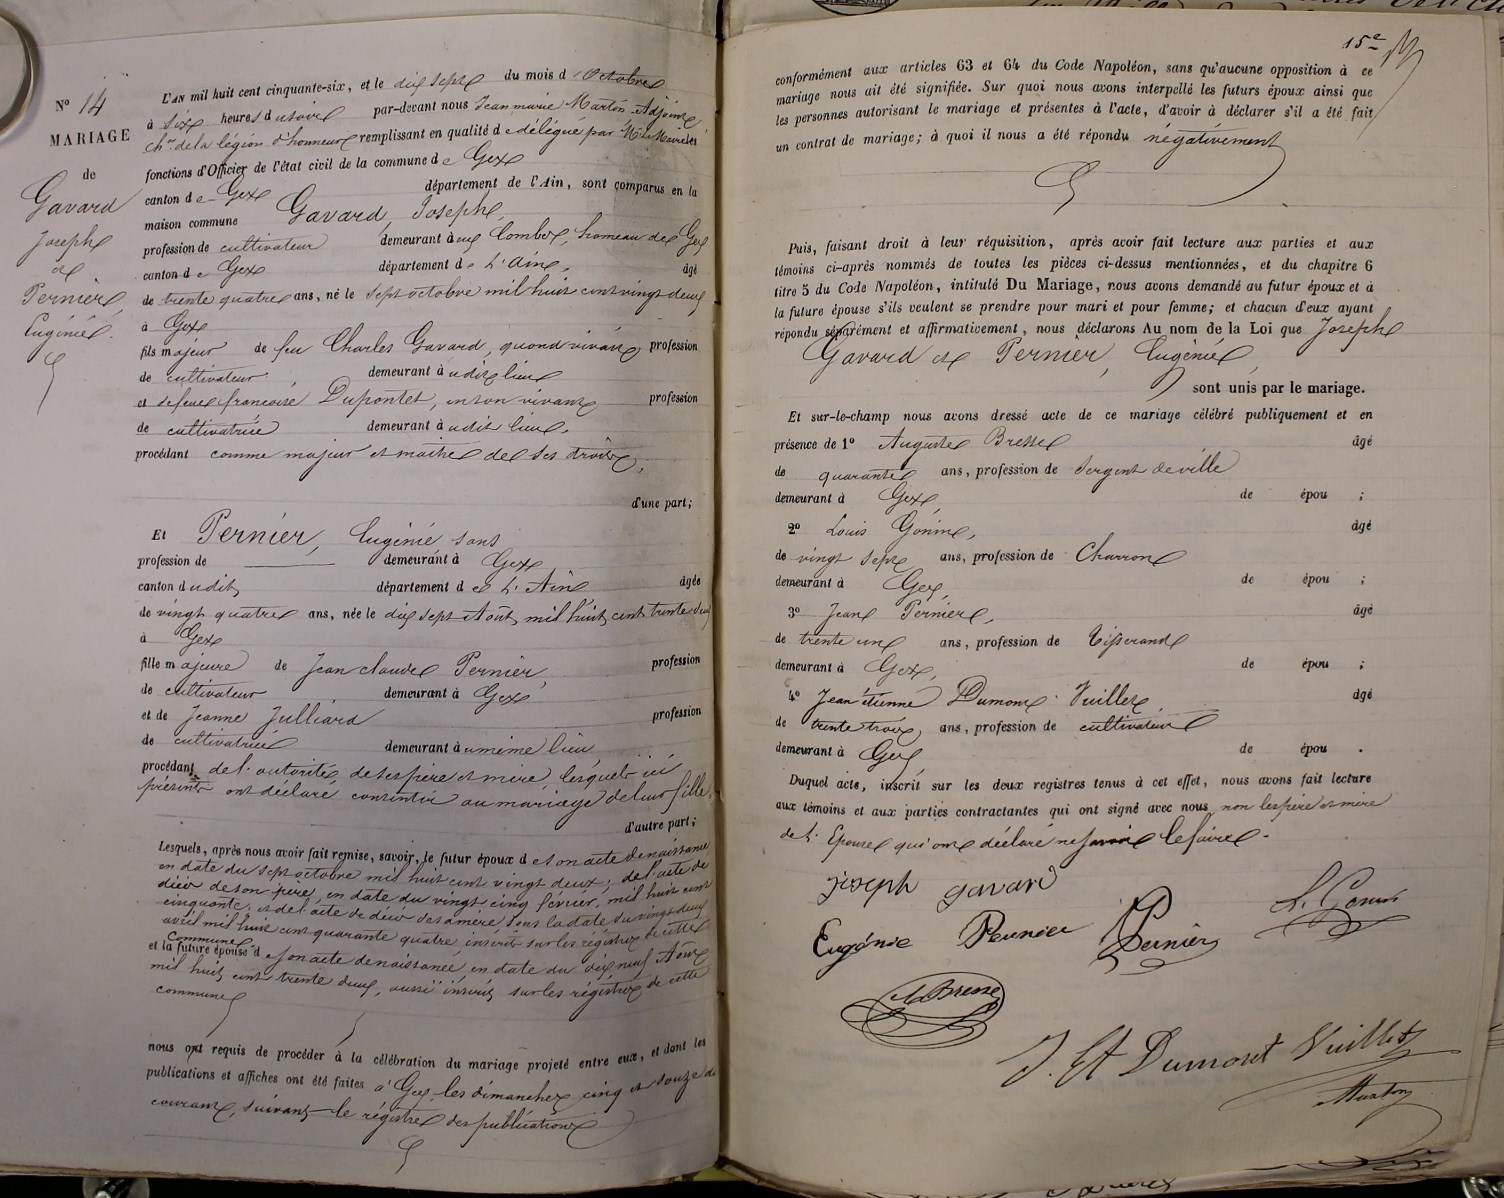 Nº 14
MARIAGE
de
Gavard
Joseph
et
Pernier
Eugénie.
L'AN mil huit cent cinquante-six, et le dix sept du mois d'Octobre
à six heures du soir par-devant nous Jean marie Marton Adjoint
ch.er de la légion d'honneur remplissant en qualité de délégué par Mr le Maire les
fonctions d'Officier de l'état civil de la commune de Gex
canton de Gex département de l'Ain, sont comparus en la
maison commune Gavard, Joseph,
profession de cultivateur demeurant à une Combe, hameau de Gex
canton de Gex département de l'Ain, âgé
de trente quatre ans, né le sept octobre mil huit cent vingt deux
à Gex
fils majeur de feu Charles Gavard, quand vivait profession
de cultivateur, demeurant à udit lieu
et de feue francoise Dupontet, en son vivant profession
de cultivatrice demeurant à udit lieu,
procédant comme majeur et maître de ses droits,
d'une part;
Et Pernier, Eugénie sans
profession de demeurant à Gex
canton dudit, département de l'Ain âgée
de vingt quatre ans, née le dix sept Août mil huit cent trente deux
à Gex
fille majeure de Jean claude Pernier, profession
de cultivateur demeurant à Gex
et de Jeanne Julliard profession
de cultivatrice demeurant à u même lieu
procédant de l'autorité de ses père et mère, lesquels ici
présents ont déclaré consentir au mariage de leur fille.
d'autre part;
Lesquels, après nous avoir fait remise, savoir, le futur époux de son acte de naissance
en date du sept octobre mil huit cent vingt deux; de l'acte de
décès de son père, en date du vingt cinq février, mil huit cent
cinquante, et de l'acte de décès de sa mère sous la date du vingt deux
avril mil huit cent quarante quatre, inscrits sur les régistres de cette
Commune
et la future épouse de son acte de naissance, en date du dix neuf Août
mil huit cent trente deux, aussi inscrit sur les régistres de cette
commune
nous ont requis de procéder à la célébration du mariage projeté entre eux, et dont les
publications et affiches ont été faites à Gex les dimanches cinq et douze du
courant, suivant le régistre des publications
15e
conformément aux articles 63 et 64 du Code Napoléon, sans qu'aucune opposition à ce
mariage nous ait été signifiée. Sur quoi nous avons interpellé les futurs époux ainsi que
les personnes autorisant le mariage et présentes à l'acte, d'avoir à déclarer s'il a été fait
un contrat de mariage; à quoi il nous a été répondu négativement
Puis, faisant droit à leur réquisition, après avoir fait lecture aux parties et aux
témoins ci-après nommés de toutes les pièces ci-dessus mentionnées, et du chapitre 6
titre 5 du Code Napoléon, intitulé Du Mariage, nous avons demandé au futur époux et à
la future épouse s'ils veulent se prendre pour mari et pour femme; et chacun d'eux ayant
répondu séparément et affirmativement, nous déclarons Au nom de la Loi que Joseph
Gavard et Pernier, Eugénie,
sont unis par le mariage.
Et sur-le-champ nous avons dressé acte de ce mariage célébré publiquement et en
présence de 1º Auguste Bresse âgé
de quarante ans, profession de Sergent de ville
demeurant à Gex, de épou ;
2º Louis Gonin, âgé
de vingt sept ans, profession de Charron
demeurant à Gex, de épou ;
3º Jean Pernier, âgé
de trente un ans, profession de Tisserand
demeurant à Gex, de épou ;
4º Jean étienne Dumont Vuillet âgé
de trente trois, ans, profession de cultivateur
demeurant à Gex, de épou .
Duquel acte, inscrit sur les deux registres tenus à cet effet, nous avons fait lecture
aux témoins et aux parties contractantes qui ont signé avec nous, non les père et mère
de l'Epouse qui ont déclaré ne savoir le faire.
joseph gavard
Eugénie Pernier Pernier L. Gonin
A Bresse
J. Et Dumont Vuillet
Marton